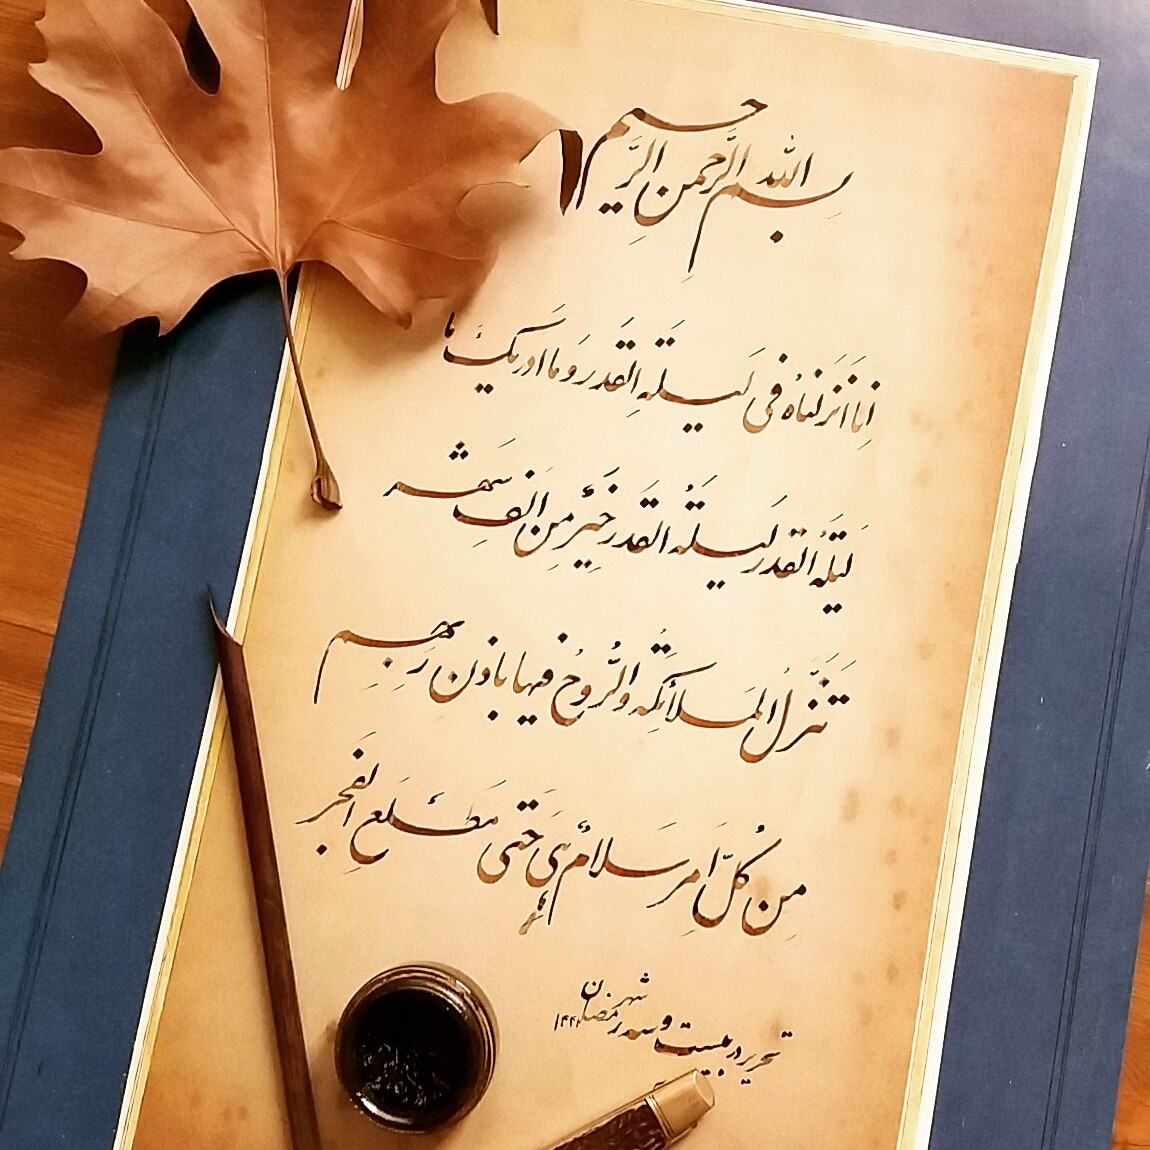 بسم الله الرحمن الرحیم
اِنا اَنزَلناهُ فی لَیلَةِ القَدر وَ ما ادریکَ ما
لَیلَةُ القَدر لَیلَةُ القَدر خَیرٌ مِن اَلفِ شَهر
تَنَزَّلُ المَلائِکَةُ وَ الرُّوحُ فیها بِاِذنِ رَبِّهِم
مِن کُلِّ اَمرٍ سَلامٌ هِیَ حَتّی مَطلَعِ الفَجر
تحریر در بیست و سه شهر رمضان